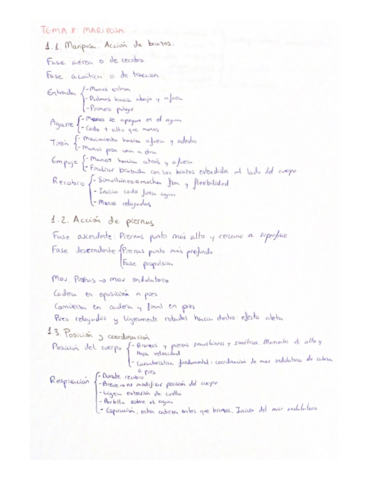 TEMA 8 MARIPOSA
1.1. Mariposa. Acción de brazos.
Fase aérea o de recobro
Fase acuática o de tracción.
Entrada - Manos
- Palmas hacia abajo y afuera
- Primero pulgar
Agarre - Manos se apoyan en el agua
- Codo + alto que mano
Tirón - Movimiento hacia afuera y adentro
- Manos
Empuje - Manos hacia atrás y afuera
- Finalizar brazada con los brazos extendidos al lado del cuerpo
Recobro - Simultáneo mucha y flexibilidad
- Inicia codo fuera agua
- Manos relajadas
1.2. Acción de piernas
Fase ascendente: Piernas punto más alto y cercano a superficie
Fase descendente - Piernas punto más profundo
- Fase propulsiva
Mov Piernas → mov ondulatorio
Cadera en oposición a pies
Comienza en cadera y final en pies
Pies relajados y ligeramente rotados hacia dentro efecto aleta
1.3. Posición y coordinación
Posición del cuerpo - Brazos y piernas simultáneos y simétricos
- Característica fundamental: coordinación de mov ondulatorio de cabeza
a pies
Respiración - Durante recobro
- modificar posición del cuerpo
- Ligera extensión de cuello
- Barbilla sobre el agua
- entra cabeza antes que brazos. Inicio del mov ondulatorio